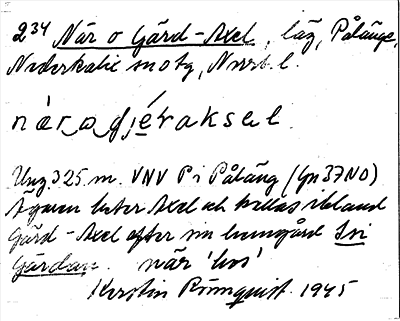 234 När o Gård-Axel, läg, Pålänge,
Nederkalix sn o tg, Nrrb. l.
nàrạ djẹ́raksəl.
Ung. 325 m. VNV P i Påläng (Gn 37 NO)
Ägaren heter Axel och kallas ibland
Gård-Axel efter sin hemgård Ini
Gårdan. när 'hos'
Kerstin Rönnquist. 1945